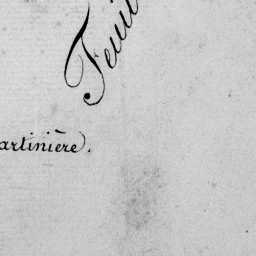 Feuil
artinière.